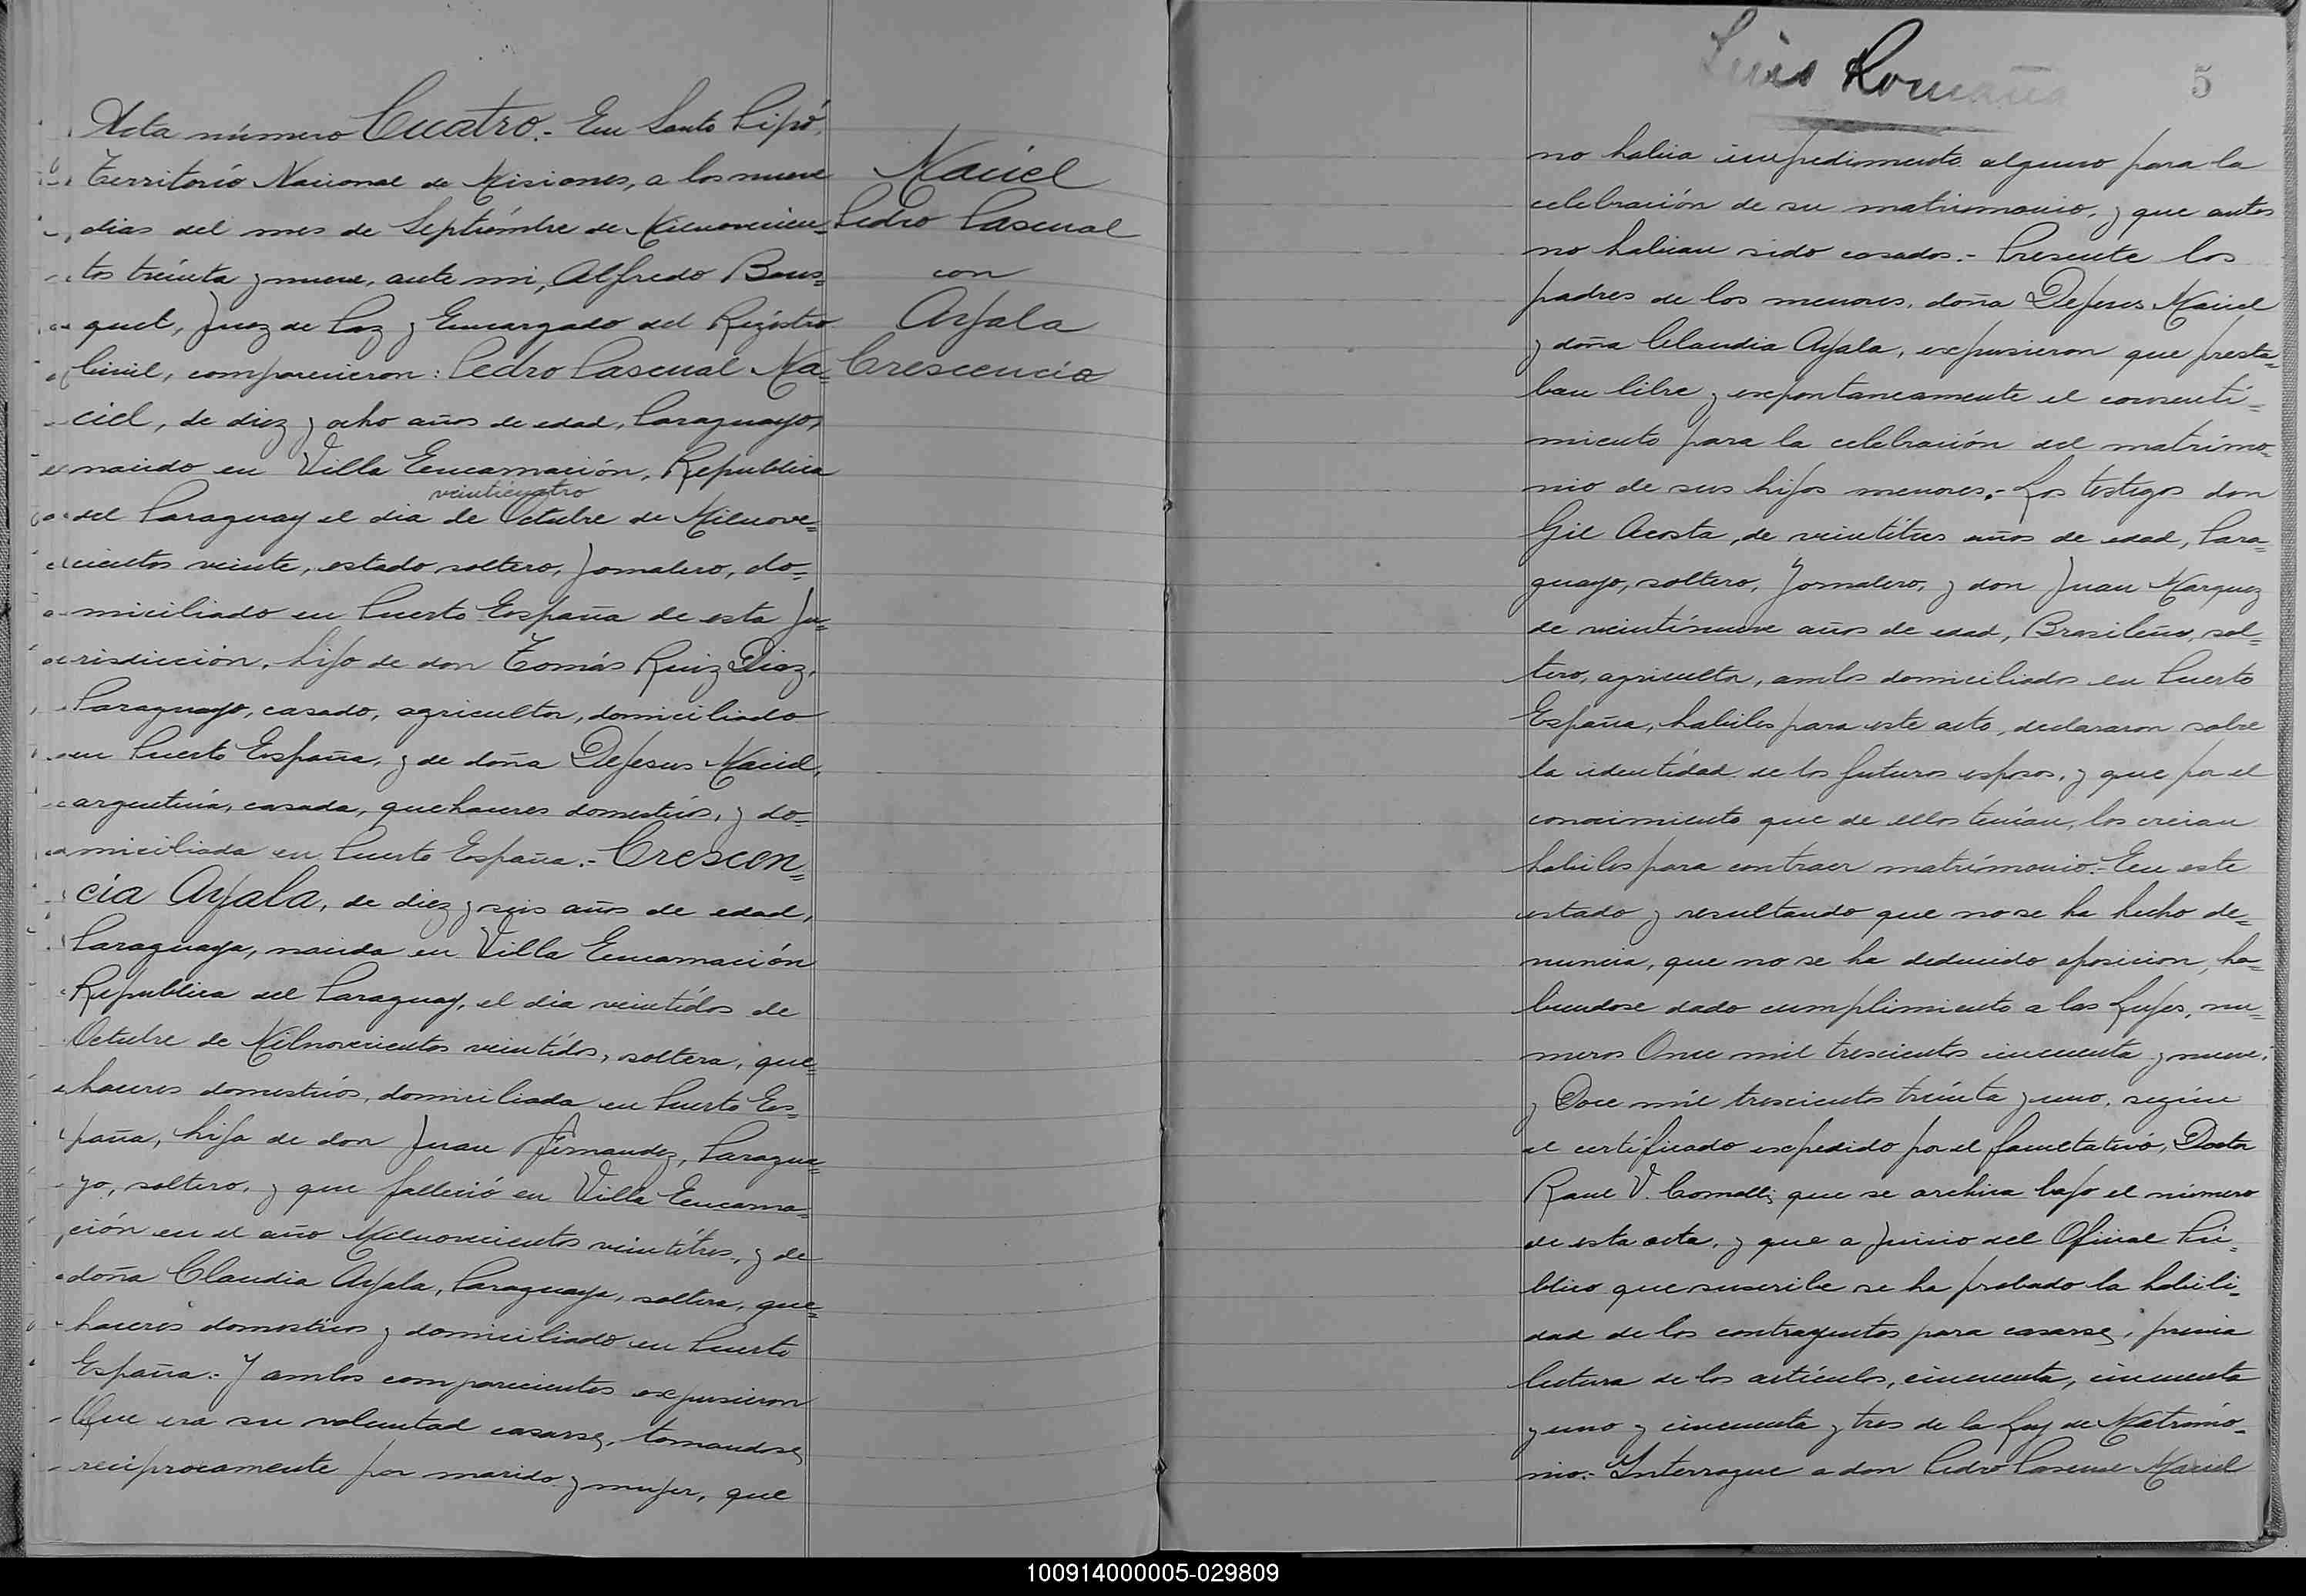 Acta número Cuatro.- En Santo Pipó,
Territorio Nacional de Misiones, a los nueve
dias del mes de Septiémbre de Milnovecien=
tos tréinta y nueve, ante mi, Alfredo Bous=
quet, Juez de Paz y Encargado del Registro
Civil, comparecieron: Pedro Pascual Ma=
ciel, de diez y ocho años de edad, Paraguayo,
nacido en Villa Encarnación, Republica
veinticuatro
del Paraguay el dia de Octubre de Milnove=
cientos veinte, estado soltero, Jornalero, do=
miciliado en Puerto España de esta Ju=
risdicción, hijo de don Tomás Ruiz Diaz,
Paraguayo, casado, agricultor, domiciliado
en Puerto España, y de doña DeJesus Maciel,
argentina, casada, quehaceres domesticos, y do=
miciliada en Puerto España.- Crescen=
cia Ayala, de diez y seis años de edad,
Paraguaya, nacida en Villa Encarnación
Republica del Paraguay, el dia veintidos de
Octubre de Milnovecientos veintidos, soltera, que=
haceres domesticos, domiciliada en Puerto Es=
paña, hija de don Juan Fernandez, Paragua=
yo, soltero, y que falleció en Villa Encarna=
ción en el año Milnovecientos veintitres, y de
doña Claudia Ayala, Paraguaya, soltera, que=
haceres domesticos y domiciliado en Puerto
España.- Y ambos comparecientes expusieron
Que era su voluntad casarse, tomandose
reciprocamente por marido y mujer, que
Maciel
Pedro Pascual
con
Ayala
Crescencia
Luis Romaña
5
no habia impedimento alguno para la
celebración de su matrimonio, y que antes
no habian sido casados.- Presente los
padres de los menores, doña DeJesus Maciel
y doña Claudia Ayala, expusieron que presta=
ban libre y expontaneamente el consenti=
miento para la celebración del matrimo=
nio de sus hijos menores.- Los testigos don
Gil Acosta, de veintitres años de edad, Para=
guayo, soltero, Jornalero, y don Juan Marquez
de veintinueve años de edad, Brasileño, sol=
tero, agricultor, ambos domiciliados en Puerto
España, habiles para este acto, declararon sobre
la identidad de los futuros esposos, y que por el
conocimiento que de ellos tenían, los creian
habiles para contraer matrimonio.- En este
estado y resultando que no se ha hecho de=
nuncia, que no se ha deducido oposicion, ha=
biendose dado cumplimiento a las Leyes, nu=
meros Once mil trescientos cincuenta y nueve,
y Doce mil trescientos tréinta y uno, según
el certificado expedido por el facultativo, Doctor
Raul V. Comolli, que se archiva bajo el número
de esta acta, y que a juicio del Oficial Pú=
blico que suscribe se ha probado la habili=
dad de los contrayentes para casarse, previa
lectura de los artículos, cincuenta, cincuenta
y uno y cincuenta y tres de la Ley de Matrimo=
nio.- Interrogue a don Pedro Pascual Maciel
100914000005-029809